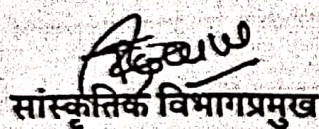 सांस्कृतिक विभागप्रमुख